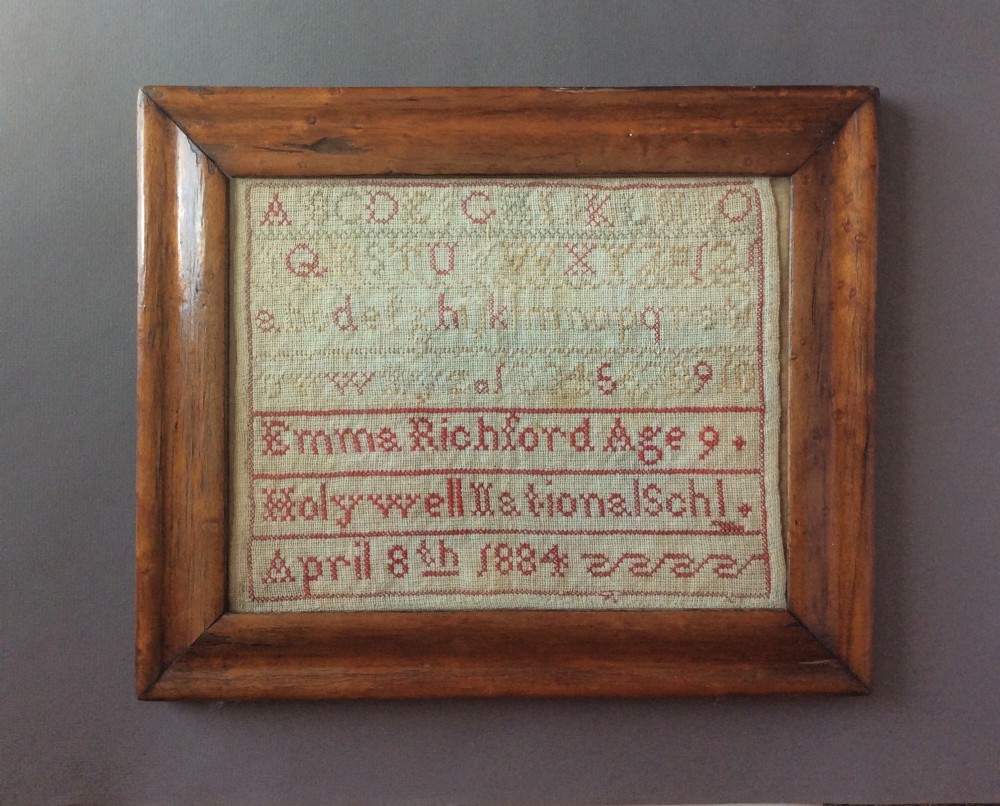 A B C D E G H I K L M O
Q R S T U V W X Y Z 1 2
a b c d e f g h i j k l m n o p q r s t
w x y z 1 2 3 4 5 6 7 8 9 10
Emma Richford Age 9
Holywell National Schl
April 8th 1884